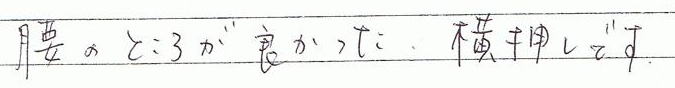 腰のところが良かった. 横押しです.